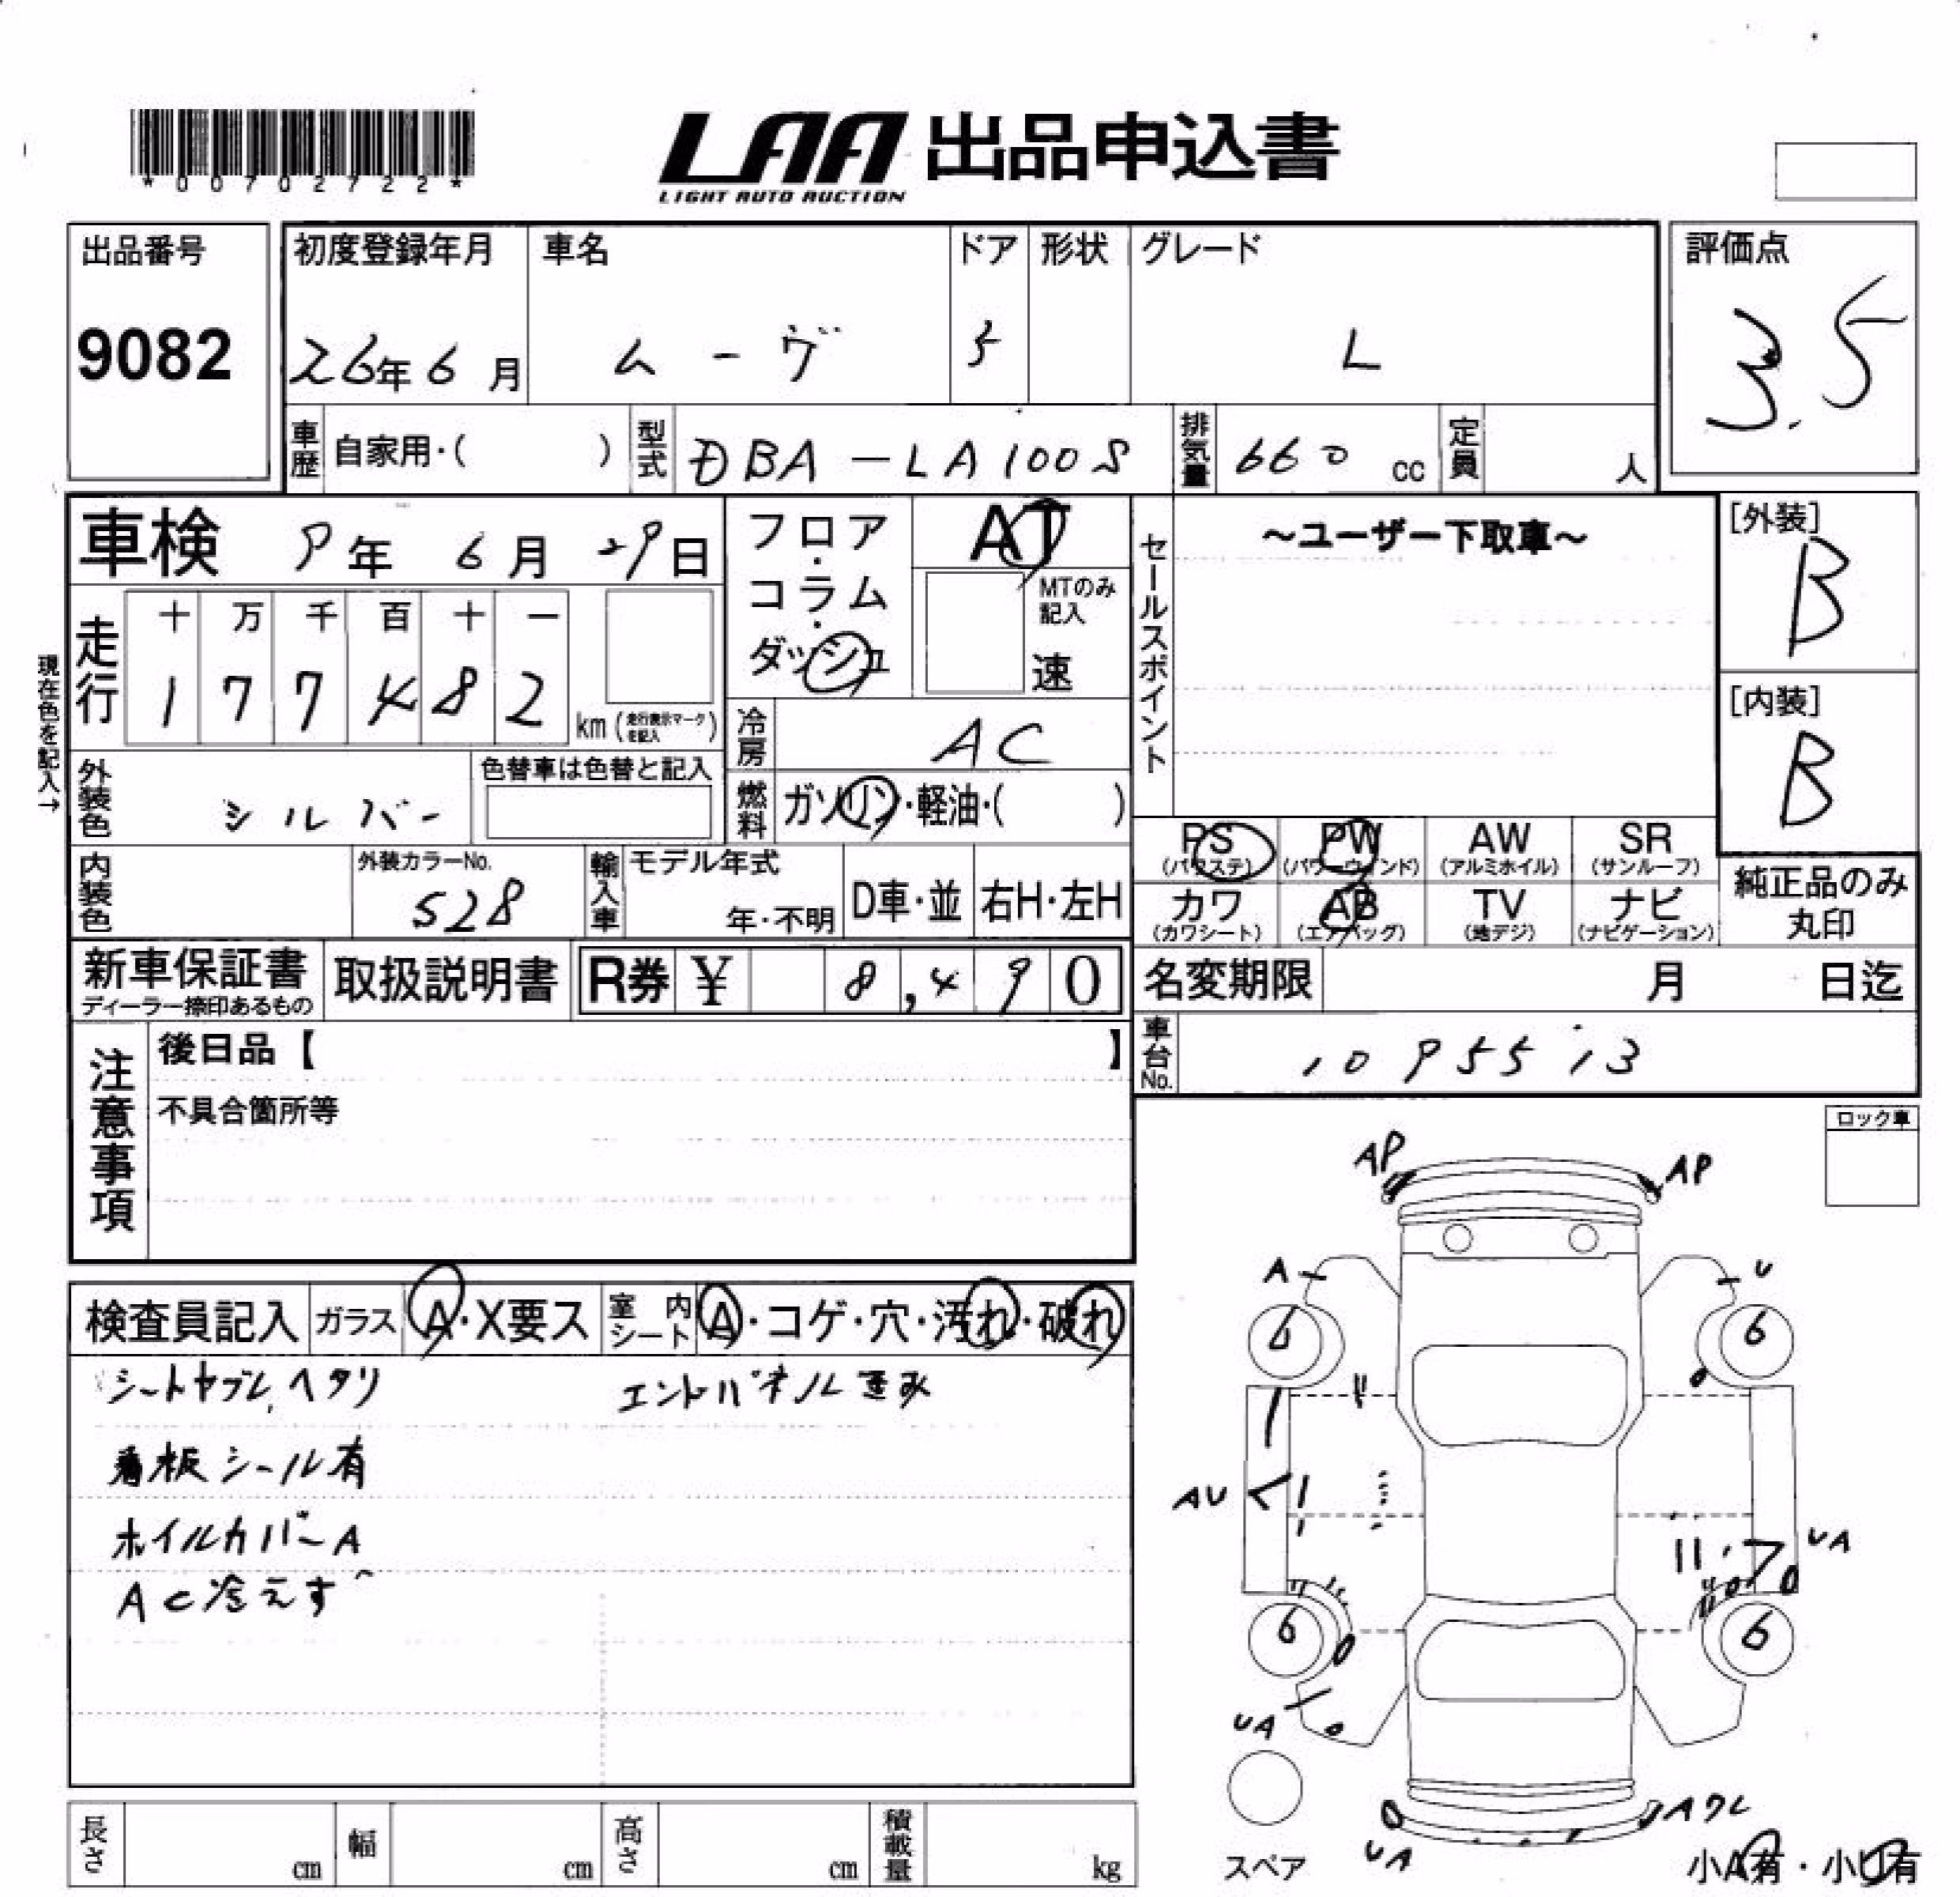 *00702722*
LAA 出品申込書
LIGHT AUTO AUCTION
出品番号
9082
初度登録年月
26年6月
車名
ムーヴ
ドア
5
形状
グレード
L
評価点
3.5
車歴
自家用・( )
型式
DBA-LA100S
排気量
660 cc
定員
人
車検 9年 6月 29日
フロア・コラム・ダッシュ
AT
MTのみ記入
速
セールスポイント
~ユーザー下取車~
[外装]
B
[内装]
B
現在色を記入→
走行
十 万 千 百 十 一
1 7 7 4 8 2
km (走行表示マークを記入)
冷房
AC
外装色
シルバー
色替車は色替と記入
燃料
ガソリン・軽油・( )
PS (パワステ)
PW (パワーウィンド)
AW (アルミホイル)
SR (サンルーフ)
カワ (カワシート)
AB (エアバッグ)
TV (地デジ)
ナビ (ナビゲーション)
純正品のみ丸印
内装色
外装カラーNo.
528
輸入車
モデル年式
年・不明
D車・並
右H・左H
新車保証書
ディーラー捺印あるもの
取扱説明書
R券 ¥ 8,490
名変期限 月 日迄
車台No.
1095513
注意事項
後日品【 】
不具合箇所等
ロック車
検査員記入
ガラス
A・X要ス
室内シート
A・コゲ・穴・汚れ・破れ
シートヤブレ,ヘタリ
エンドパネル歪み
看板シール有
ホイルカバーA
AC冷えず
AP
AP
A
U
6
6
AU
UA
6
6
UA
スペア
UA
Aワレ
小A有・小U有
長さ cm
幅 cm
高さ cm
積載量 kg